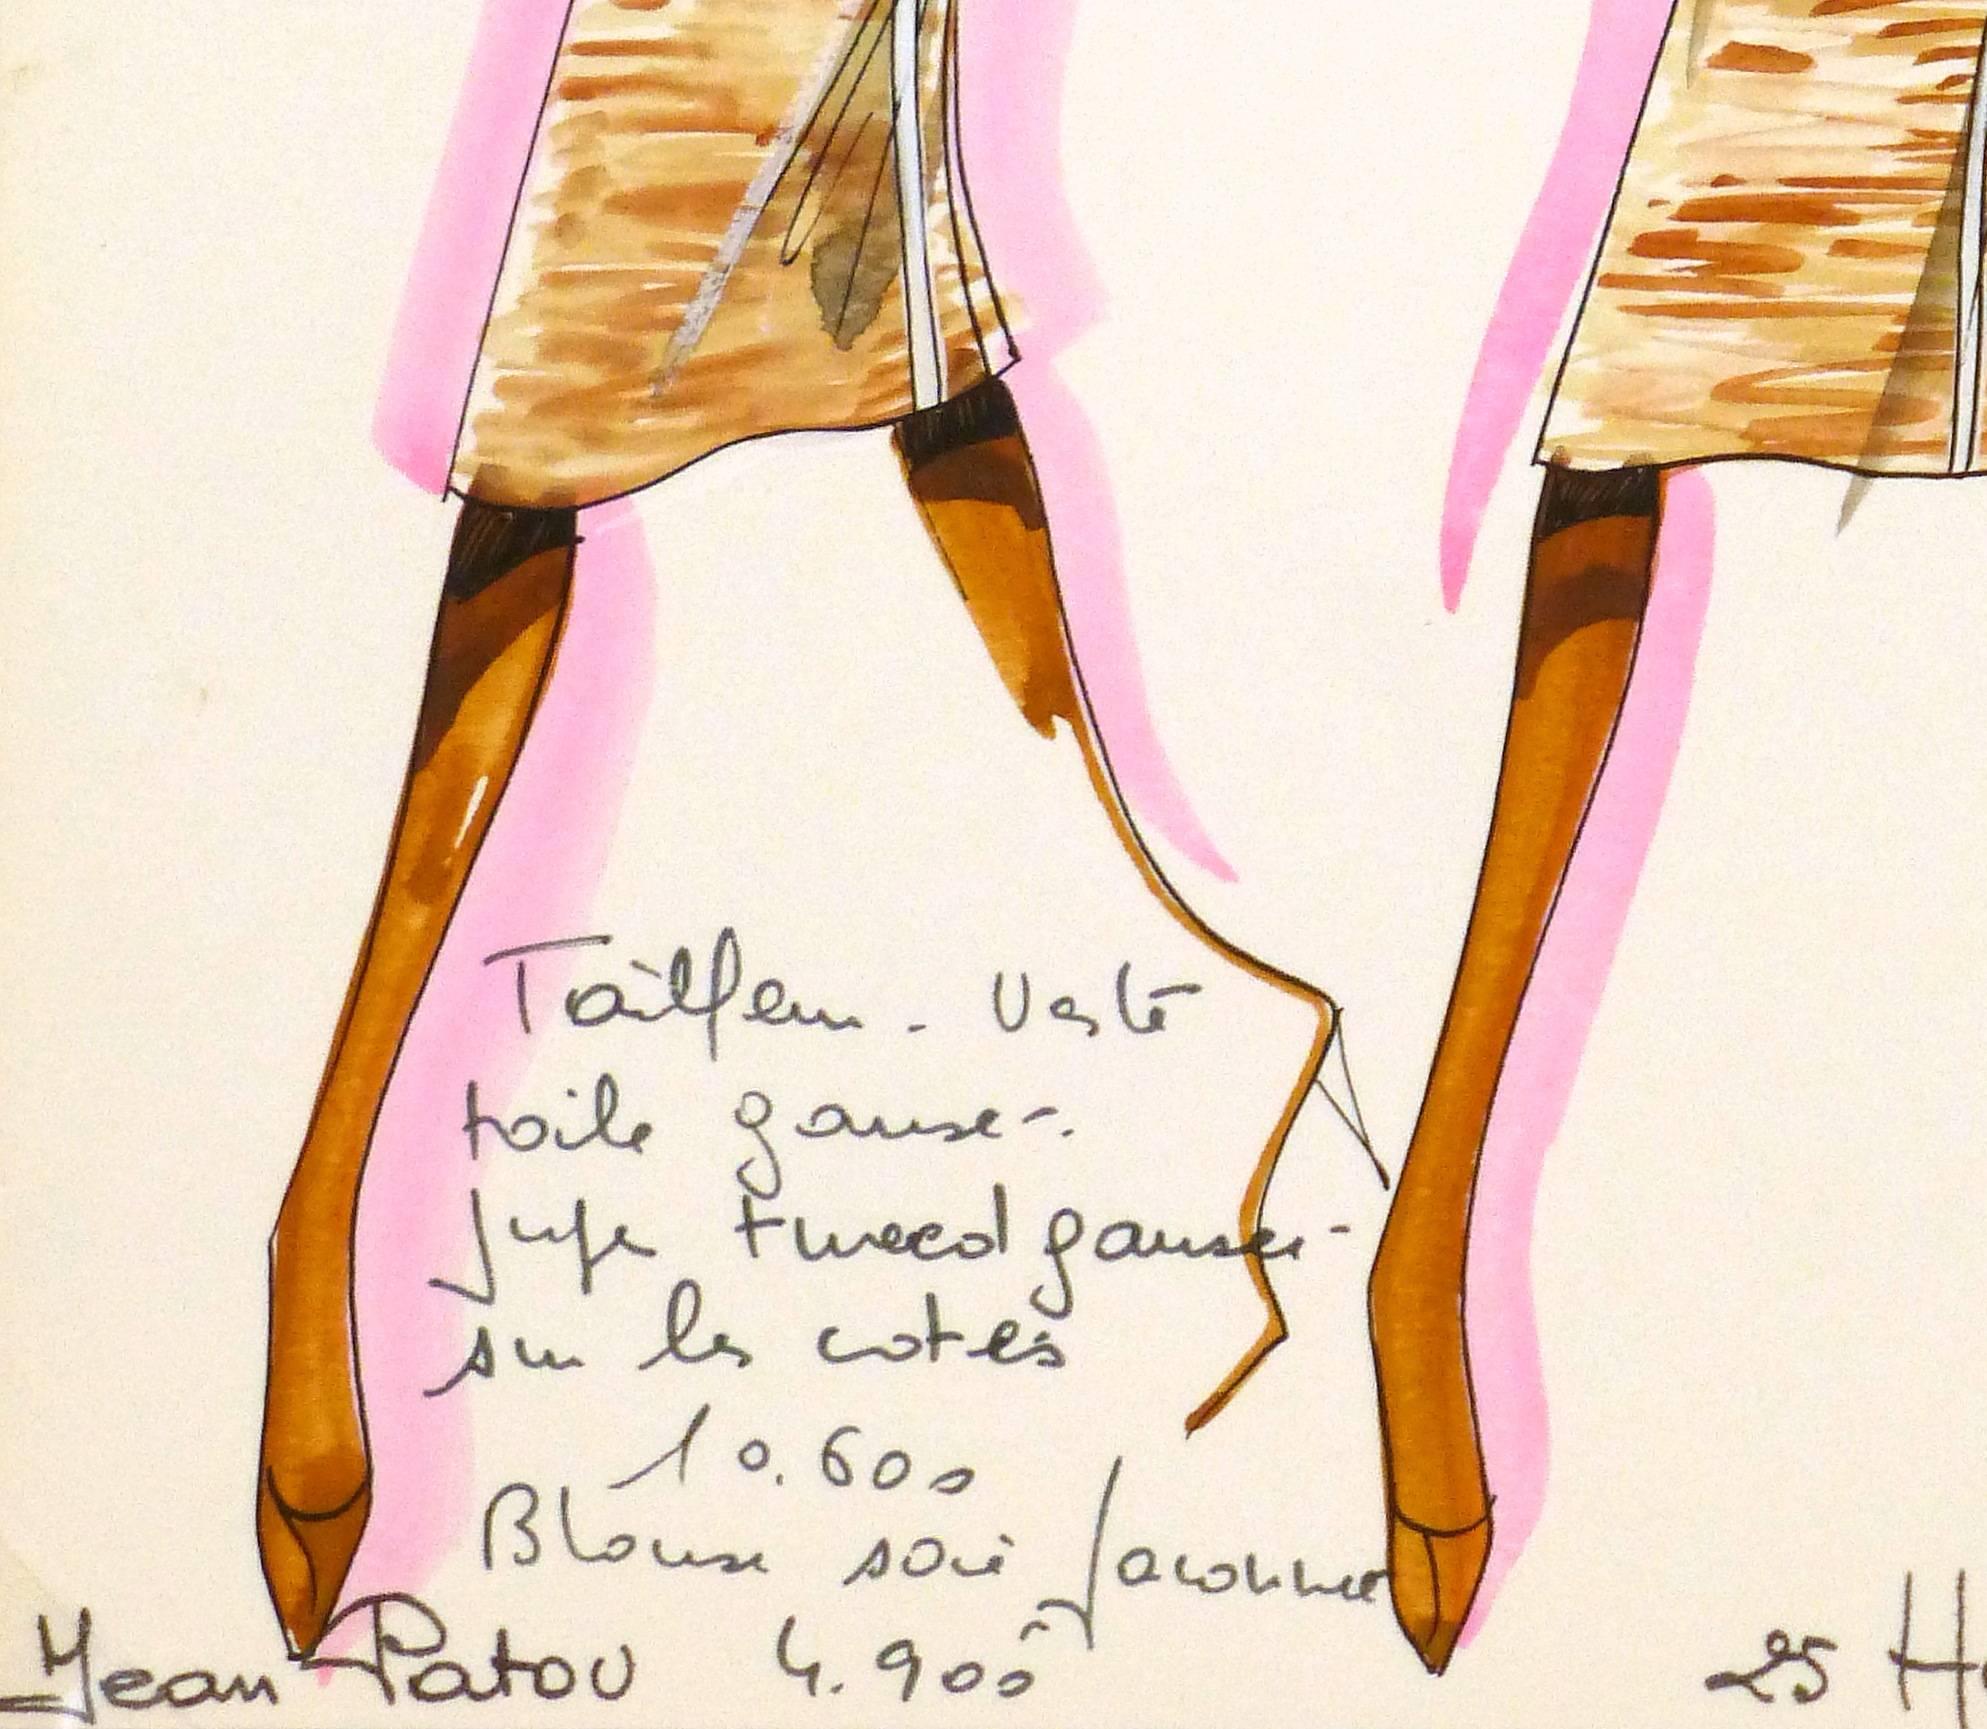 Tailleur - Veste
toile gansée.
jupe tweed gansée
sur les cotés
10.600
Blouse soie façonnée
Jean Patou 4.900
25 H